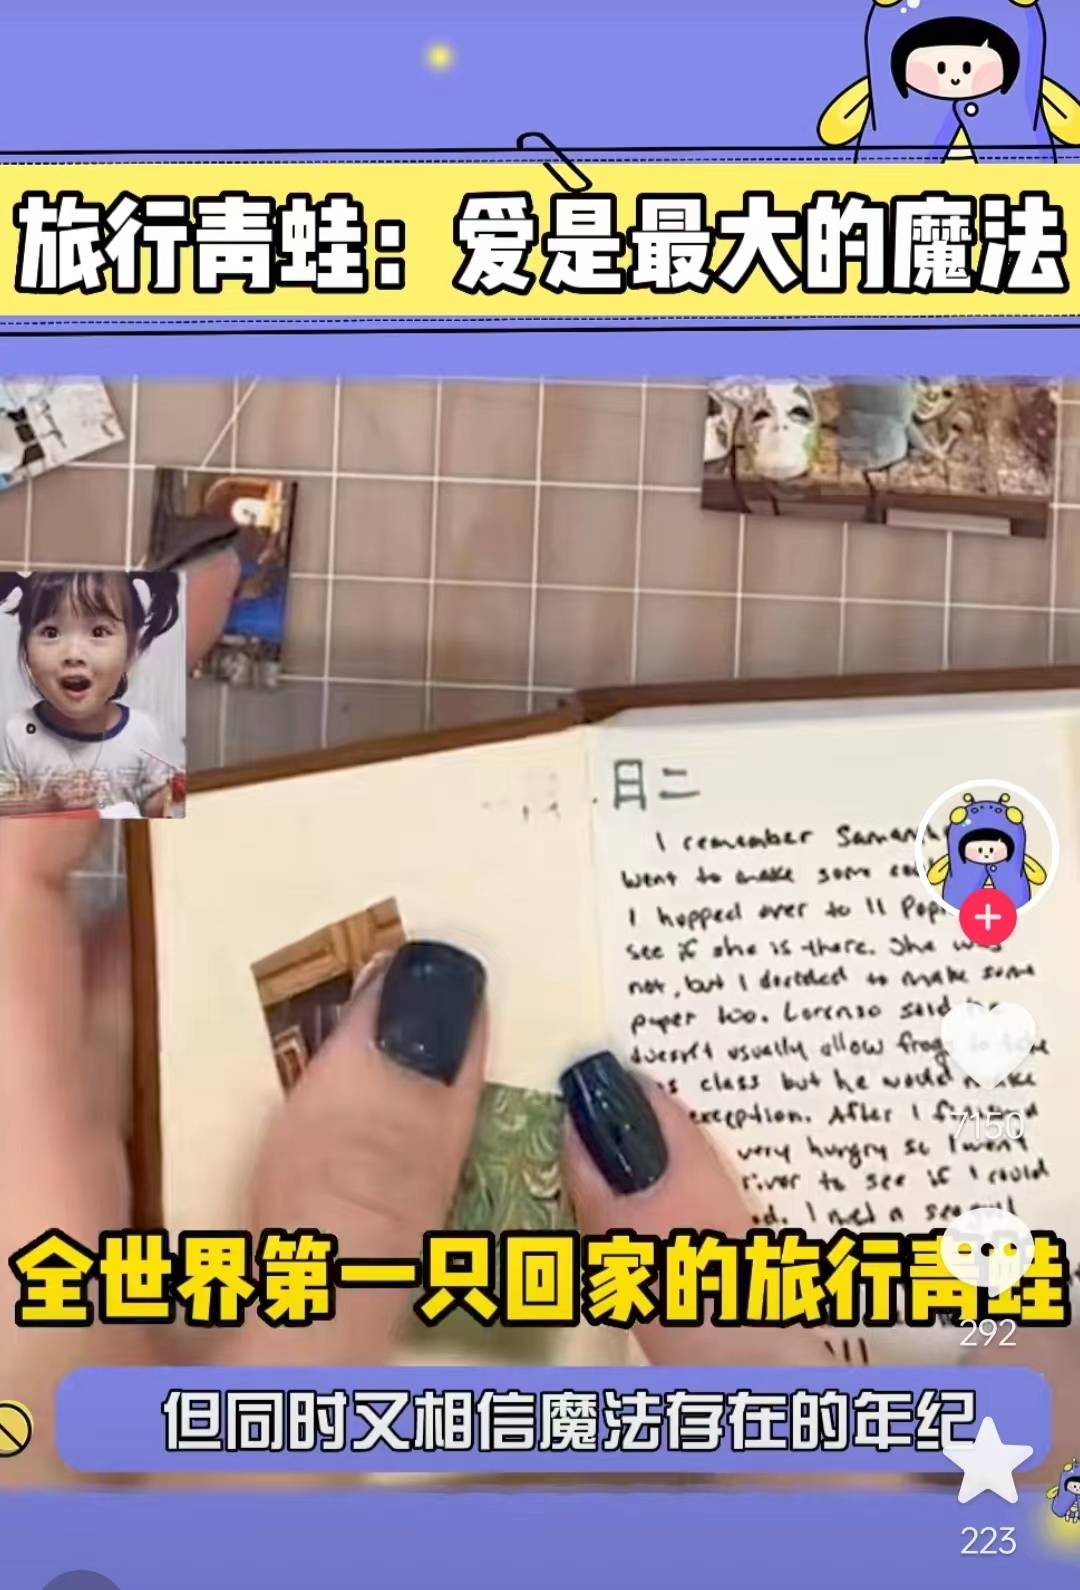 旅行青蛙：爱是最大的魔法
日二
I remember
went to make some
I hopped over to Il
see if she is there. She was
not, but I decided to make some
paper too. Lorenzo said he
doesn't usually allow frogs to take
class but he would make
exception. After I
very hungry so I went
river to see if I could
I met a seagull
7150
全世界第一只回家的旅行青蛙
292
但同时又相信魔法存在的年纪
223